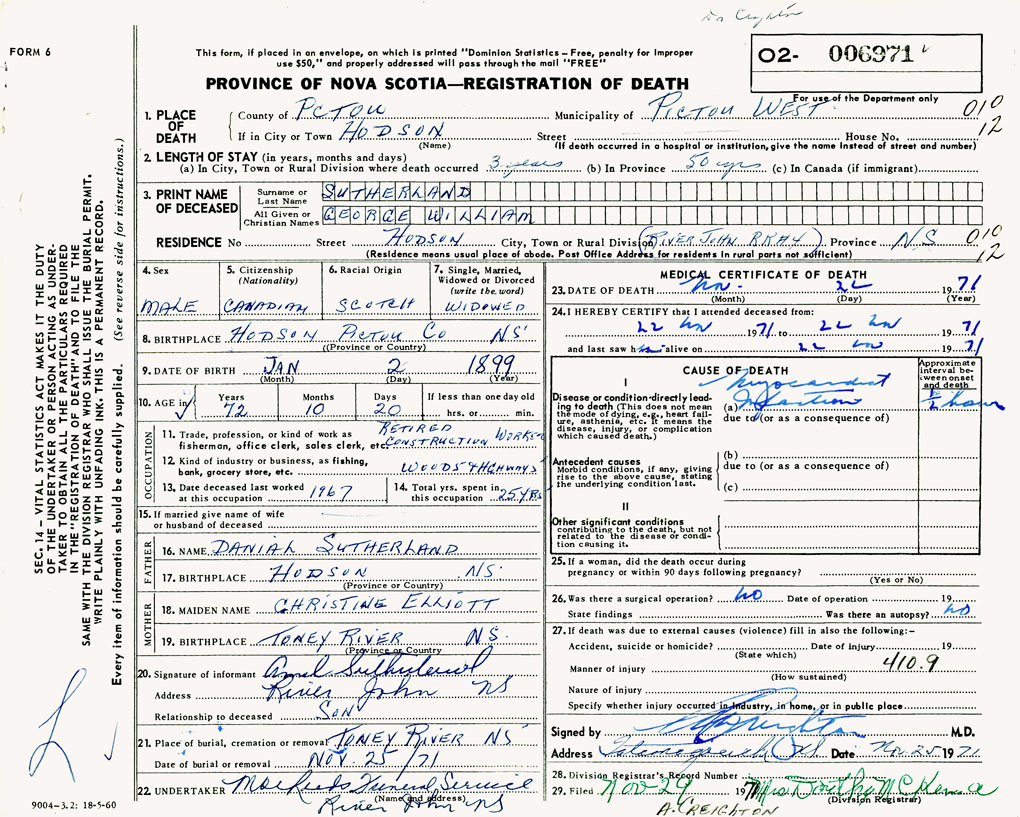 FORM 6
This form, if placed in an envelope, on which is printed "Dominion Statistics – Free, penalty for improper
use $50," and properly addressed will pass through the mail "FREE"
O2- 006971
PROVINCE OF NOVA SCOTIA—REGISTRATION OF DEATH
For use of the Department only
010
12
1. PLACE OF DEATH
County of PCTOU Municipality of PICTOU WEST
If in City or Town HODSON Street House No.
(Name) (If death occurred in a hospital or institution, give the name Instead of street and number)
2. LENGTH OF STAY (in years, months and days)
(a) In City, Town or Rural Division where death occurred 3 years (b) In Province 50 yrs (c) In Canada (if immigrant)
3. PRINT NAME OF DECEASED
Surname or Last Name SUTHERLAND
All Given or Christian Names GEORGE WILLIAM
RESIDENCE No Street HODSON City, Town or Rural Division (RIVER JOHN RRAY) Province NS 010
12
(Residence means usual place of abode. Post Office Address for residents in rural parts not sufficient)
4. Sex
MALE
5. Citizenship
(Nationality)
CANADIAN
6. Racial Origin
SCOTCH
7. Single, Married,
Widowed or Divorced
(write the word)
WIDOWED
8. BIRTHPLACE HODSON PICTOU CO NS
((Province or Country)
9. DATE OF BIRTH JAN 2 1899
(Month) (Day) (Year)
10. AGE in Years Months Days If less than one day old
72 10 20 hrs. or min.
OCCUPATION
11. Trade, profession, or kind of work as RETIRED
fisherman, office clerk, sales clerk, etc. CONSTRUCTION WORKER
12. Kind of industry or business, as fishing,
bank, grocery store, etc. WOODS & HGHWAYS
13. Date deceased last worked
at this occupation 1967
14. Total yrs. spent in
this occupation 25 YRS
15. If married give name of wife
or husband of deceased
FATHER
16. NAME DANIAL SUTHERLAND
17. BIRTHPLACE HODSON NS.
(Province or Country)
MOTHER
18. MAIDEN NAME CHRISTINE ELLIOTT
19. BIRTHPLACE TONEY RIVER NS.
(Province or Country
20. Signature of informant Sutherland
Address River John NS
Relationship to deceased SON
21. Place of burial, cremation or removal TONEY RIVER NS
Date of burial or removal NOV. 25/71
22. UNDERTAKER Funeral Service
(Name and address)
River John NS
MEDICAL CERTIFICATE OF DEATH
23. DATE OF DEATH 22 1971
(Month) (Day) (Year)
24. I HEREBY CERTIFY that I attended deceased from:
22 1971 to 22 1971
and last saw him alive on 22 1971
CAUSE OF DEATH
Approximate
interval be-
tween onset
and death
I
Disease or condition-directly lead-
ing to death (This does not mean
the mode of dying, e.g., heart fail-
ure, asthenia, etc. It means the
disease, injury, or complication
which caused death.)
Myocardial
(a) Infarction 1/2 hour
due to (or as a consequence of)
Antecedent causes
Morbid conditions, if any, giving
rise to the above cause, stating
the underlying condition last.
(b)
due to (or as a consequence of)
(c)
II
Other significant conditions
contributing to the death, but not
related to the disease or condi-
tion causing it.
25. If a woman, did the death occur during
pregnancy or within 90 days following pregnancy?
(Yes or No)
26. Was there a surgical operation? NO Date of operation 19
State findings Was there an autopsy? NO
27. If death was due to external causes (violence) fill in also the following:–
Accident, suicide or homicide? Date of injury 19
(State which)
Manner of injury 410.9
(How sustained)
Nature of injury
Specify whether injury occurred in industry, in home, or in public place
Signed by Creighton M.D.
Address Date Nov. 25 1971
28. Division Registrar's Record Number
29. Filed Nov 29 1971 Mrs
(Division Registrar)
A. CREIGHTON
SEC. 14 – VITAL STATISTICS ACT MAKES IT THE DUTY
OF THE UNDERTAKER OR PERSON ACTING AS UNDER-
TAKER TO OBTAIN ALL THE PARTICULARS REQUIRED
IN THE "REGISTRATION OF DEATH" AND TO FILE THE
SAME WITH THE DIVISION REGISTRAR WHO SHALL ISSUE THE BURIAL PERMIT.
WRITE PLAINLY WITH UNFADING INK. THIS IS A PERMANENT RECORD.
Every item of information should be carefully supplied. (See reverse side for instructions.)
9004-3.2: 18-5-60